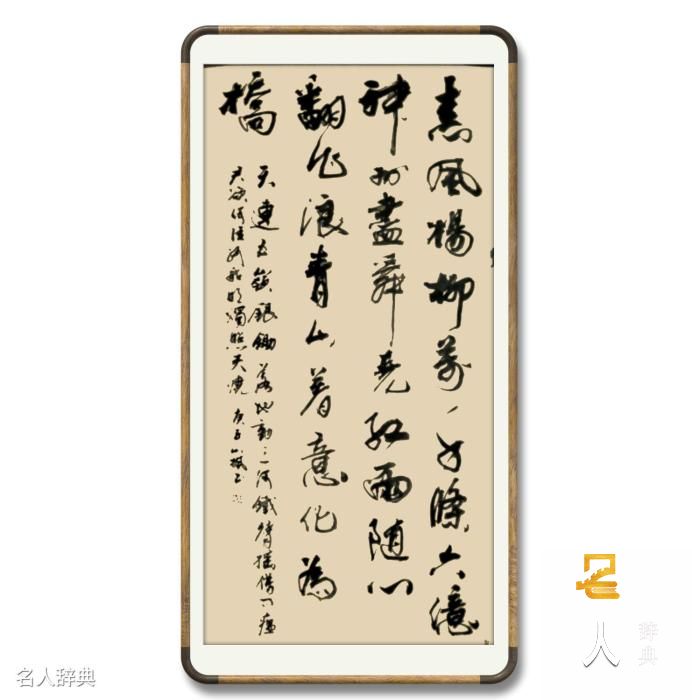 春風楊柳萬千條六億
神州盡舜堯紅雨隨心
翻作浪青山着意化為
橋
天連五嶺銀鋤落地動三河鐵臂搖借問瘟
君欲何往紙船明燭照天燒 庚子
名人辞典
名人
辞典